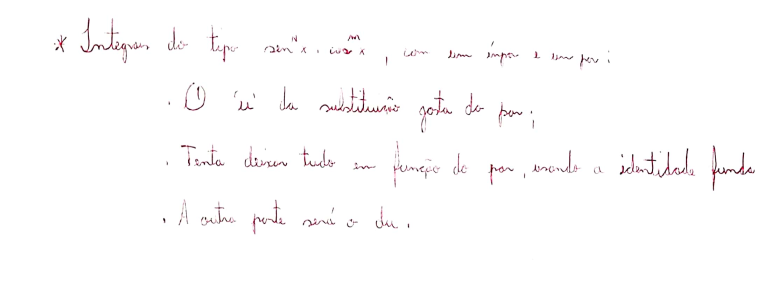 * Integrais do tipo senⁿx . cosᵐx, com um ímpar e um par:
. O 'u' da substituição gosta do par;
. Tenta deixar tudo em função do par, usando a identidade funda
. A outra parte será o du.